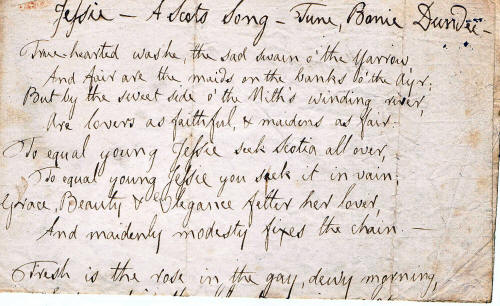 Jessie — A Scots Song — Tune, Bonie Dundee —
True-hearted was he, the sad swain o' the Yarrow
And fair are the maids on the banks o' the Ayr;
But by the sweet side o' the Nith's winding river,
Are lovers as faithful, & maidens as fair:
To equal young Jessie seek Scotia all over,
To equal young Jessie you seek it in vain;
Grace, Beauty & Elegance fetter her lover,
And maidenly modesty fixes the chain —
Fresh is the rose in the gay, dewy morning,